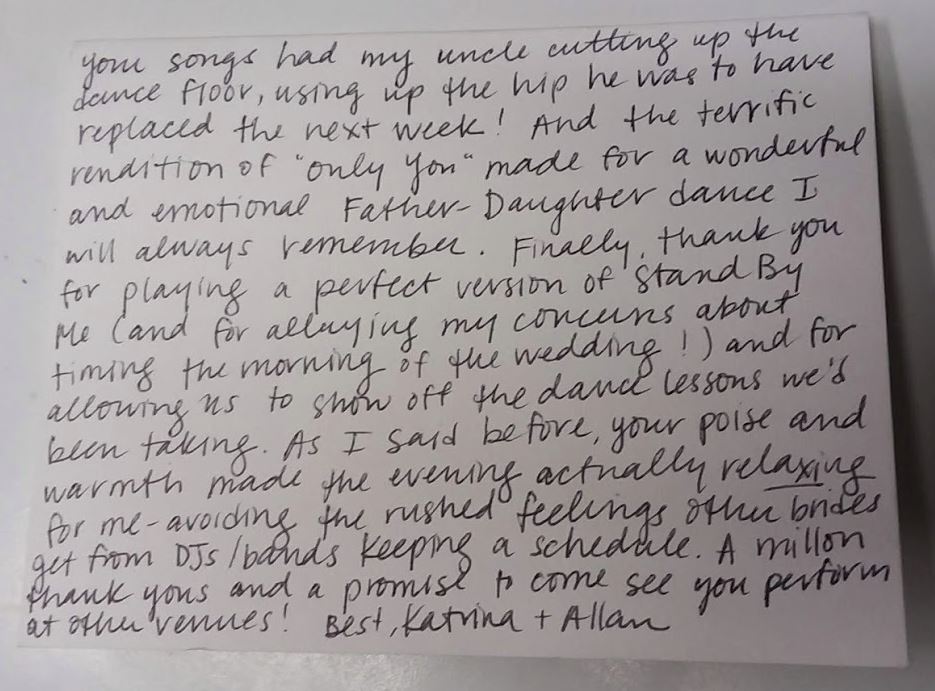 your songs had my uncle cutting up the
dance floor, using up the hip he was to have
replaced the next week! And the terrific
rendition of "only you" made for a wonderful
and emotional Father-Daughter dance I
will always remember. Finally, thank you
for playing a perfect version of Stand By
Me (and for allaying my concerns about
timing the morning of the wedding!) and for
allowing us to show off the dance lessons we'd
been taking. As I said before, your poise and
warmth made the evening actually relaxing
for me-avoiding the rushed feelings other brides
get from DJs/bands keeping a schedule. A millon
thank yous and a promise to come see you perform
at other venues! Best, Katrina + Allan